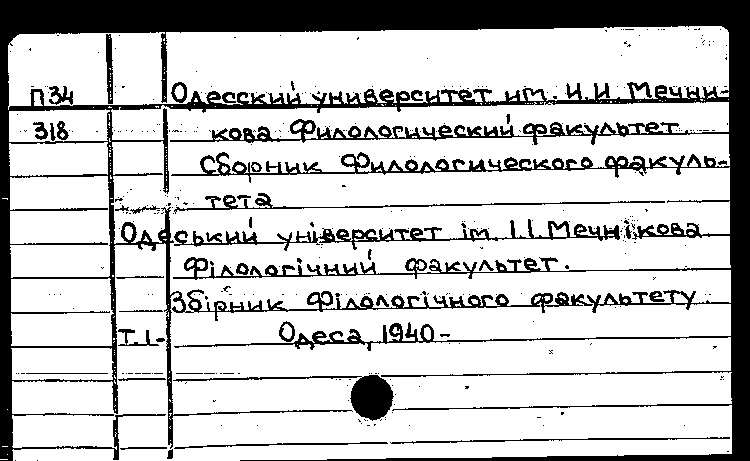 П34 Одесский университет им. И.И. Мечни-
318 кова. Филологический факультет.
Сборник Филологического факуль-
тета
Одеський університет ім. І.І. Мечнікова
Філологічний факультет.
Збірник Філологічного факультету.
Т.1- Одеса, 1940-